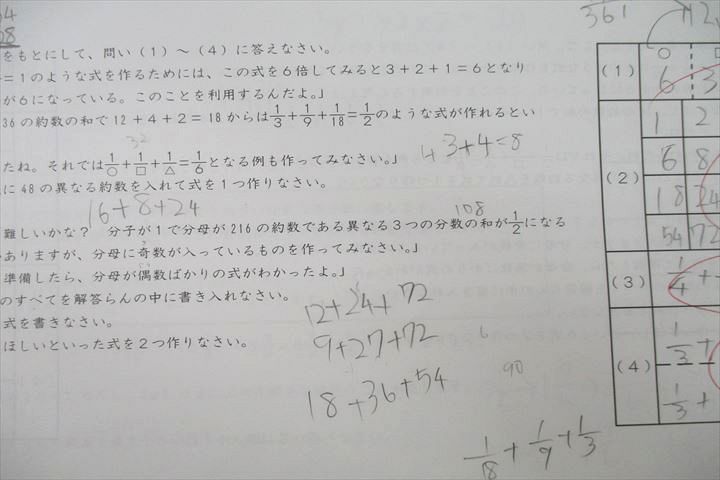 361
をもとにして、問い（1）～（4）に答えなさい。
=1のような式を作るためには、この式を6倍してみると3+2+1=6となり
が6になっている。このことを利用するんだよ。」
36の約数の和で12+4+2=18からは1/3+1/9+1/18=1/2のような式が作れるとい
32
たね。それでは1/○+1/□+1/△=1/6となる例も作ってみなさい。」
4 3+4=8
に48の異なる約数を入れて式を1つ作りなさい。
16+8+24
108
難しいかな？ 分子が1で分母が216の約数である異なる3つの分数の和が1/2になる
ありますが、分母に奇数が入っているものを作ってみなさい。」
準備したら、分母が偶数ばかりの式がわかったよ。」
のすべてを解答らんの中に書き入れなさい。
式を書きなさい。
ほしいといった式を2つ作りなさい。
12+24+72
9+27+72
18+36+54
6
90
1/18+1/9+1/3
（1） ○
6 3
（2） 1 2
6 8
18 24
54 72
（3） 1/4+
（4） 1/3+
1/3+